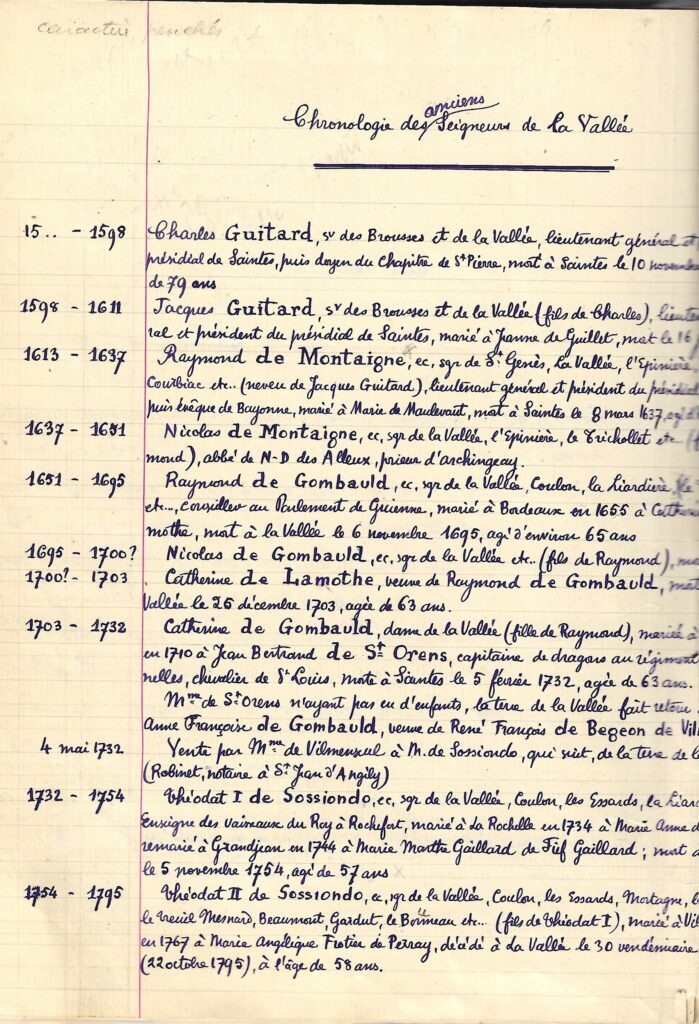 caractères penchés
anciens
Chronologie des Seigneurs de La Vallée
15.. - 1598 Charles Guitard, sr des Brousses et de la Vallée, lieutenant général et
présidial de Saintes, puis doyen du Chapitre de St Pierre, mort à Saintes le 10 novembre
de 79 ans
1598 - 1611 Jacques Guitard, sr des Brousses et de la Vallée (fils de Charles), lieuten
ral et président du présidial de Saintes, marié à Jeanne de Guillet, mort le 16
1613 - 1637 Raymond de Montaigne, ec, sgr de St Genès, La Vallée, l'Epinière,
Courbiac etc.. (neveu de Jacques Guitard), lieutenant général et président du présidial
puis évêque de Bayonne, marié à Marie de Maulevaut, mort à Saintes le 8 mars 1637,
1637 - 1651 Nicolas de Montaigne, ec, sgr de la Vallée, l'Epinière, le Trichollet etc (
mond), abbé de N-D des Alleux, prieur d'archingeay.
1651 - 1695 Raymond de Gombauld, ec, sgr de la Vallée, Coulon, la Liardière,
etc.., conseiller au Parlement de Guienne, marié à Bordeaux en 1655 à Cathe
mothe, mort à la Vallée le 6 novembre 1695, agé d'environ 65 ans
1695 - 1700? Nicolas de Gombauld, ec, sgr de la Vallée etc.. (fils de Raymond),
1700? - 1703 Catherine de Lamothe, veuve de Raymond de Gombauld, mort
Vallée le 25 décembre 1703, agée de 63 ans.
1703 - 1732 Catherine de Gombauld, dame de la Vallée (fille de Raymond), mariée à
en 1710 à Jean Bertrand de St Orens, capitaine de dragons au régiment
nelles, chevalier de St Louis, morte à Saintes le 5 février 1732, agée de 63 ans.
Mme de St Orens n'ayant pas eu d'enfants, la terre de la Vallée fait retour
Anne Françoise de Gombauld, veuve de René François de Begeon de Vil
4 mai 1732 Vente par Mme de Vilmenseul à M. de Sossiondo, qui suit, de la terre de l
(Robinet, notaire à St Jean d'Angily)
1732 - 1754 Théodat I de Sossiondo, ec, sgr de la Vallée, Coulon, les Essards, la Liar
Enseigne des vaisseaux du Roy à Rochefort, marié à La Rochelle en 1734 à Marie Anne d
remarié à Grandjean en 1744 à Marie Marthe Gaillard de Fief Gaillard ; mort
le 5 novembre 1754, agé de 57 ans
1754 - 1795 Théodat II de Sossiondo, ec, sgr de la Vallée, Coulon, les Essards, Mortagne, l
le Treuil Mesnard, Beaumont, Gardut, le etc.. (fils de Théodat I), marié à Vil
en 1767 à Marie Angélique Frotier de Perray, décédé à La Vallée le 30 vendémiaire
(22 octobre 1795), à l'âge de 58 ans.